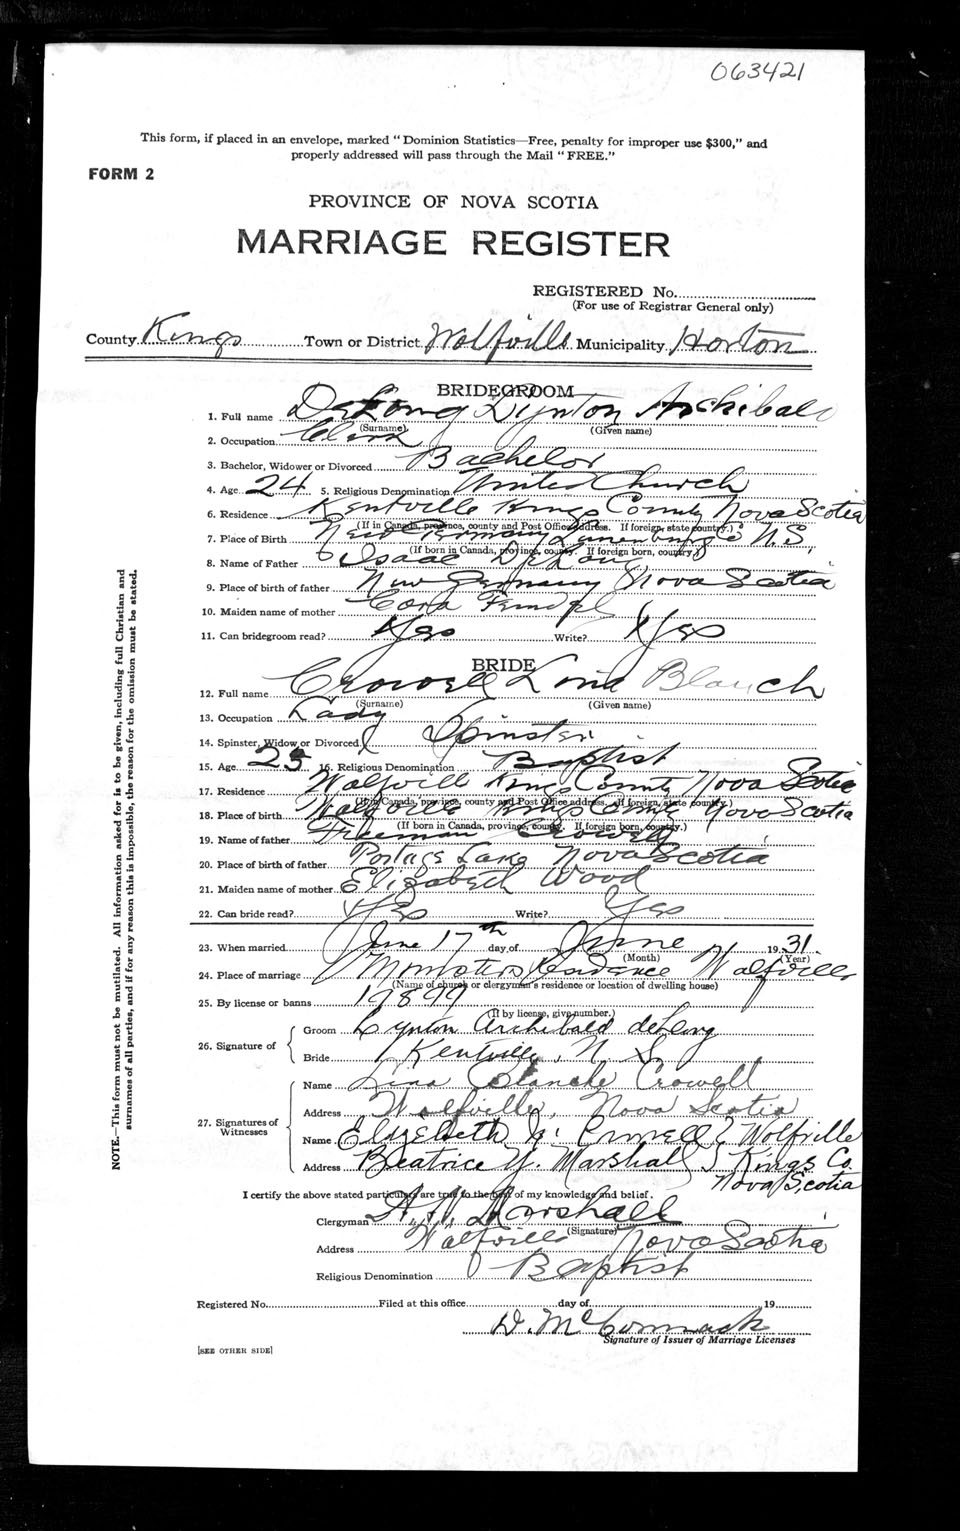 063421
This form, if placed in an envelope, marked "Dominion Statistics—Free, penalty for improper use $300," and
properly addressed will pass through the Mail "FREE."
FORM 2
PROVINCE OF NOVA SCOTIA
MARRIAGE REGISTER
REGISTERED No.
(For use of Registrar General only)
County Kings Town or District Wolfville Municipality Horton
BRIDEGROOM
1. Full name DeLong Lynton Archibald
(Surname) (Given name)
2. Occupation Clerk
3. Bachelor, Widower or Divorced Bachelor
4. Age 24 5. Religious Denomination United Church
6. Residence Kentville Kings County Nova Scotia
(If in Canada, province, county and Post Office address. If foreign, state country.)
7. Place of Birth New Germany Lunenburg Co N.S,
(If born in Canada, province, county. If foreign born, country.)
8. Name of Father Isaac DeLong
9. Place of birth of father New Germany Nova Scotia
10. Maiden name of mother Cora
11. Can bridegroom read? Yes Write? Yes
BRIDE
12. Full name Crowell Lina Blanch
(Surname) (Given name)
13. Occupation Lady
14. Spinster, Widow or Divorced Spinster
15. Age 25 16. Religious Denomination Baptist
17. Residence Wolfville Kings County Nova Scotia
(If in Canada, province, county and Post Office address. If foreign, state country.)
18. Place of birth Wolfville Kings County Nova Scotia
(If born in Canada, province, county. If foreign born, country.)
19. Name of father Freeman Crowell
20. Place of birth of father Portage Lake Nova Scotia
21. Maiden name of mother Elizabeth Wood
22. Can bride read? Yes Write? Yes
23. When married June 17th day of June 1931.
(Month) (Year)
24. Place of marriage Ministers Residence Wolfville
(Name of church or clergyman's residence or location of dwelling house)
25. By license or banns 19899
(If by license, give number.)
26. Signature of Groom Lynton Archibald deLong
Bride Kentville, N. S.
27. Signatures of Witnesses
Name Lina Blanche Crowell
Address Wolfville, Nova Scotia
Name Elizebeth Crowell Wolfville
Address Beatrice Y. Marshall Kings Co.
Nova Scotia
I certify the above stated particulars are true to the best of my knowledge and belief.
Clergyman Marshall
(Signature)
Address Wolfville Nova Scotia
Religious Denomination Baptist
Registered No. Filed at this office day of 19
D. McCormack
Signature of Issuer of Marriage Licenses
[SEE OTHER SIDE]
NOTE.—This form must not be mutilated. All information asked for is to be given, including full Christian and
surnames of all parties, and if for any reason this is impossible, the reason for the omission must be stated.